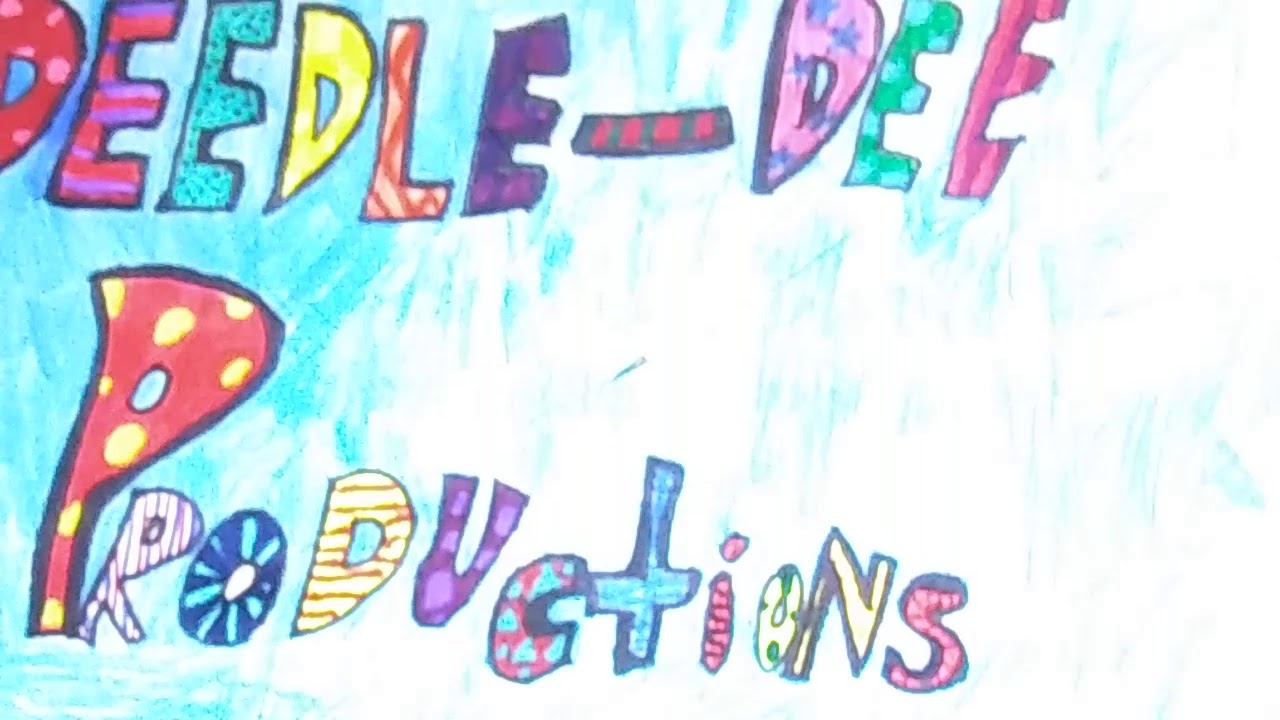 DEEDLE-DEE
PRODUCtiONS